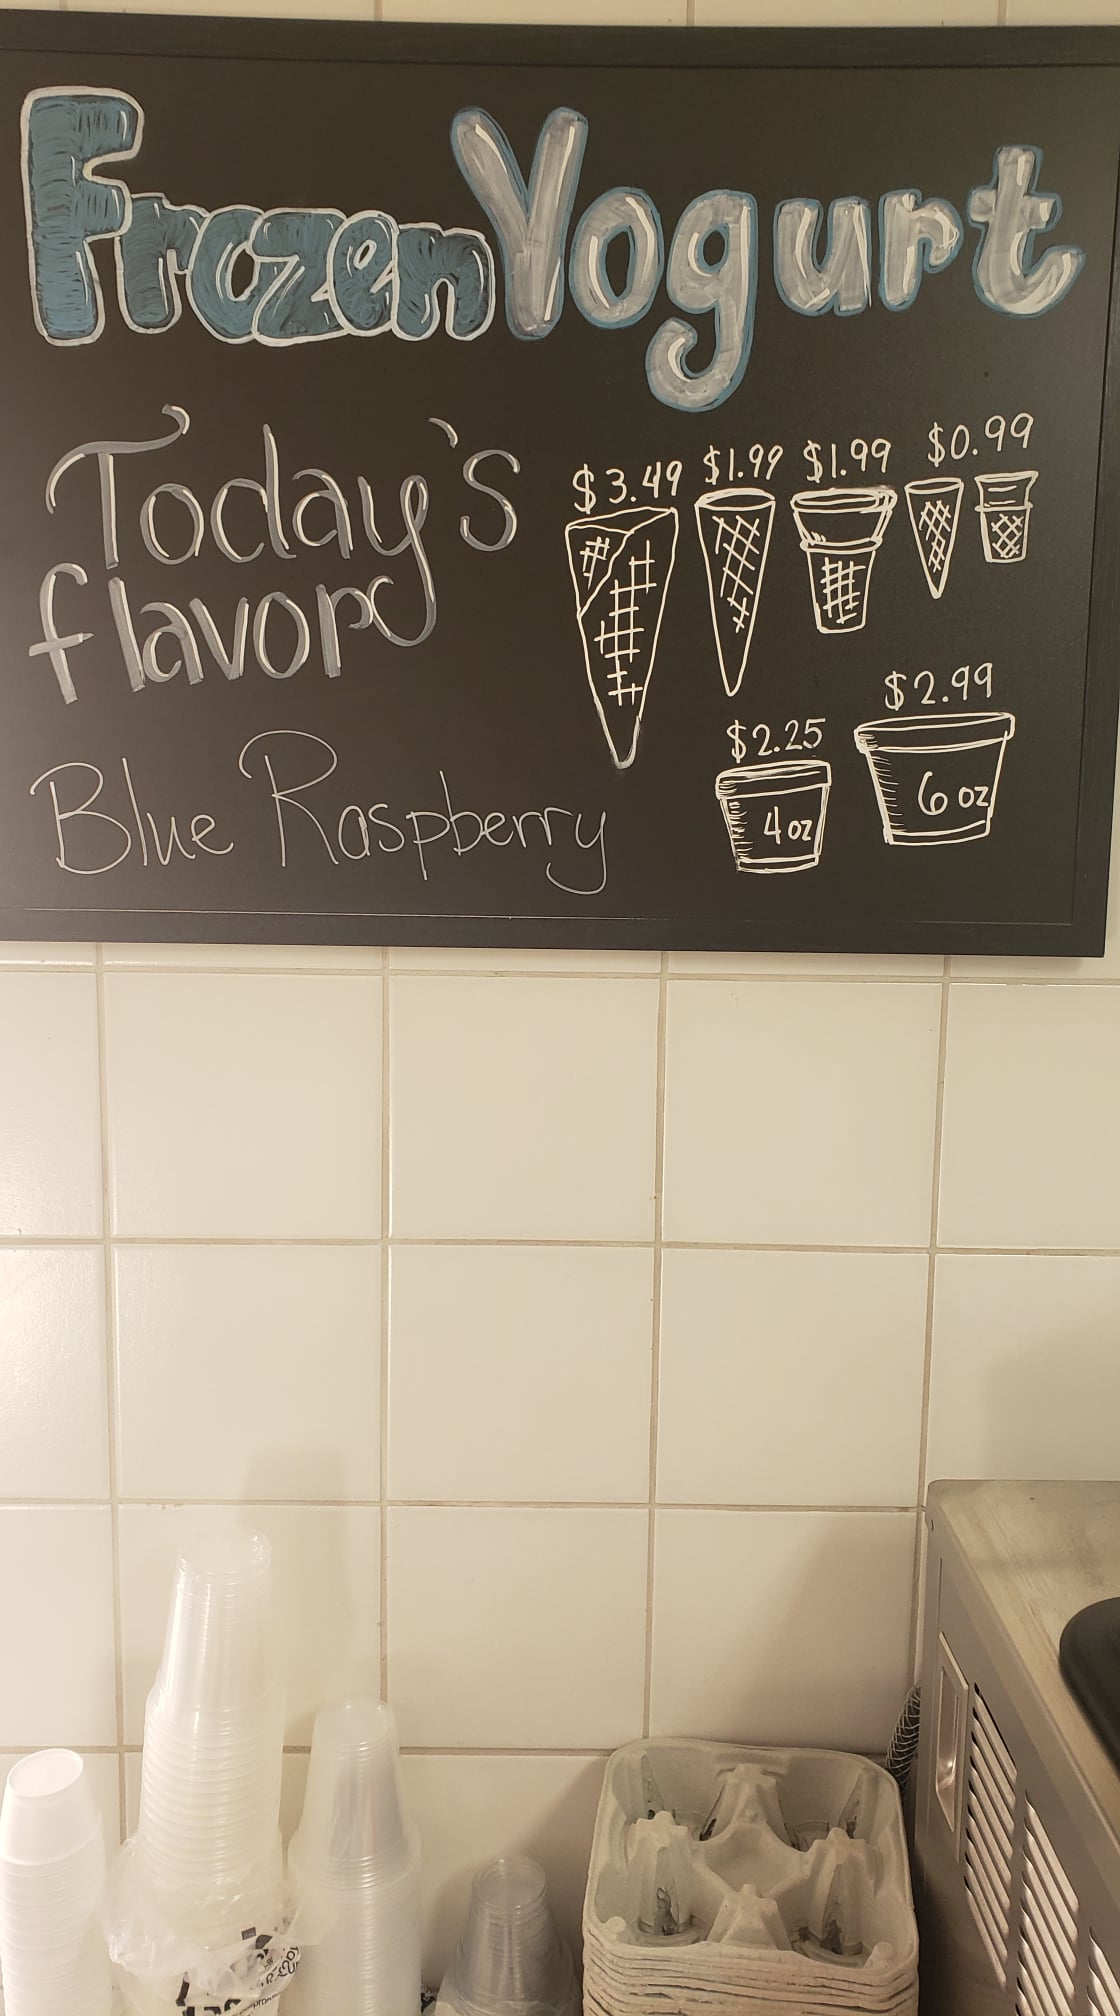 Frozen Yogurt
Today's
flavor
Blue Raspberry
$3.49 $1.99 $1.99 $0.99
$2.25 $2.99
4 oz 6 oz